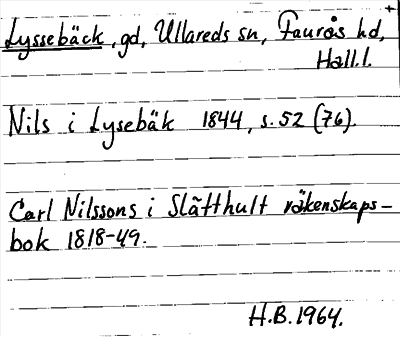 Lyssebäck, gd, Ullareds sn, Faurås hd,
Hall.l.
Nils i Lysebäk 1844, s. 52 (76).
Carl Nilssons i Slätthult räkenskaps-
bok 1818-49.
H.B. 1964.